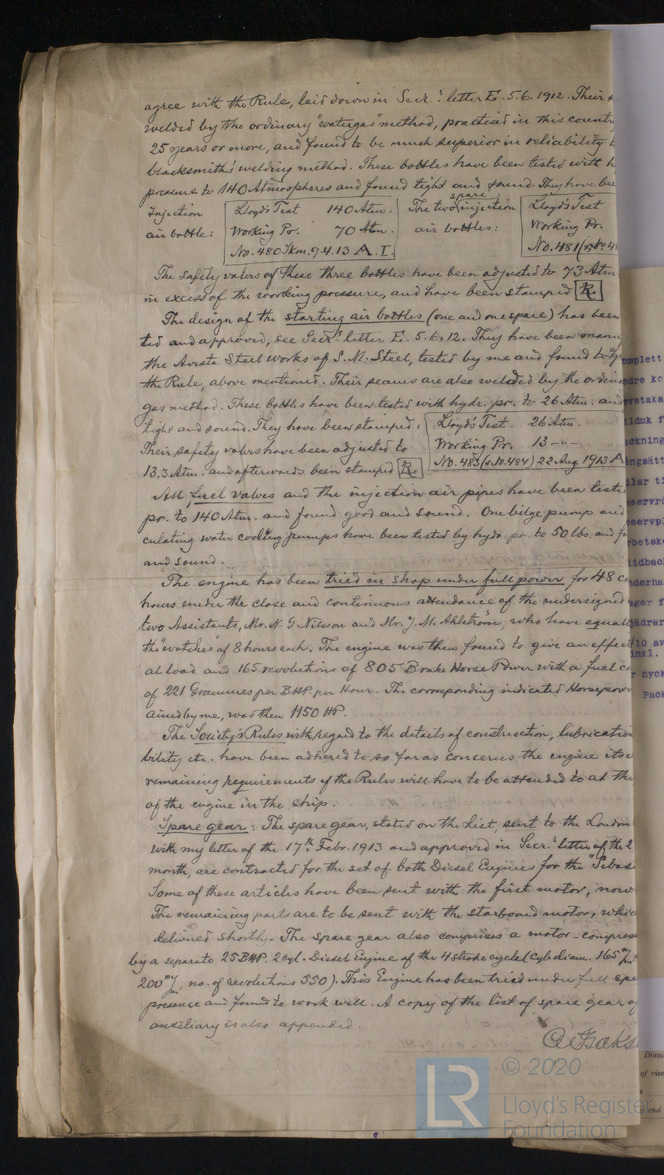 agree with the Rule, laid down in Secr.' letter E. 5.6.1912. Their
welded by the ordinary "watergas" method, practised in this county
25 years or more, and found to be much superior in reliability
blacksmith's welding method. These bottles have been tested with h
pressure to 140 Atmospheres and found tight and sound. They have bee
Injection air bottle: Lloyd's Test 140 Atm. Working Pr. 70 Atm. No. 480 9.4.13 A.I.
The two spare injection air bottles: Lloyd's Test Working Pr. No. 481
The safety valves of these three bottles have been adjusted to 73 Atm
in excess of the working pressure, and have been stamped
The design of the starting air bottles (one and one spare) has been
ted and approved, see Secr.' letter E. 5.6.12. They have been manu
the Avesta Steel works of S.M. Steel, tested by me and found to
the Rule, above mentioned. Their seams are also welded by the ordin
gas method. These bottles have been tested with hydr. pr. to 26 Atm. and
tight and sound. They have been stamped:
Lloyd's Test 26 Atm.
Working Pr. 13 -"-
No. 483 (& No. 484) 22 Aug 1913 A
Their safety valves have been adjusted to
13.3 Atm. and afterwards been stamped
All fuel valves and the injection air pipes have been teste
pr. to 140 Atm. and found good and sound. One bilge pump and
culating water cooling pumps have been tested by hydr. pr. to 50 lbs. and fo
and sound.
The engine has been tried in shop under full power for 48 c
hours under the close and continuous attendance of the undersigned
two Assistants, Mr. N. G. Nilsson and Mr. J. M. Ahlström, who have equal
the "watches" of 8 hours each. The engine was then found to give an effect
at load and 165 revolutions of 805 Brake Horse Power with a fuel co
of 221 Grammes per BHP per Hour. The corresponding indicated Horsepow
ained by me, was then 1150 HP.
The Society's Rules with regard to the details of construction, lubricatio
bility etc. have been adhered to so far as concerns the engine itse
remaining requirements of the Rules will have to be attended to at the
of the engine in the ship.
Spare gear: The spare gear, stated on the List, sent to the London
with my letter of the 17th Febr. 1913 and approved in Secr.' letter of the 2
month, are contracted for the set of both Diesel Engines for the "Sebas
Some of these articles have been sent with the first motor, now
The remaining parts are to be sent with the starboard motor, whic
delivered shortly. The spare gear also comprises a motor-compres
by a separate 25 BHP. 2 cyl. Diesel Engine of the 4 stroke cycle (Cyl. diam. 165 m/m
200 m/m, no. of revolutions 550). This Engine has been tried under full
presence and found to work well. A copy of the list of spare gear
auxiliary is also appended.
omplett
dre ko
vstaka
ilduk f
ckning
ngsätt
lar ti
servrö
servpi
betak
idbac
nderha
ager f
ädrar
/10 av
inkl.
r nyck
Pack
© 2020
LR
Lloyd's Register
Foundation